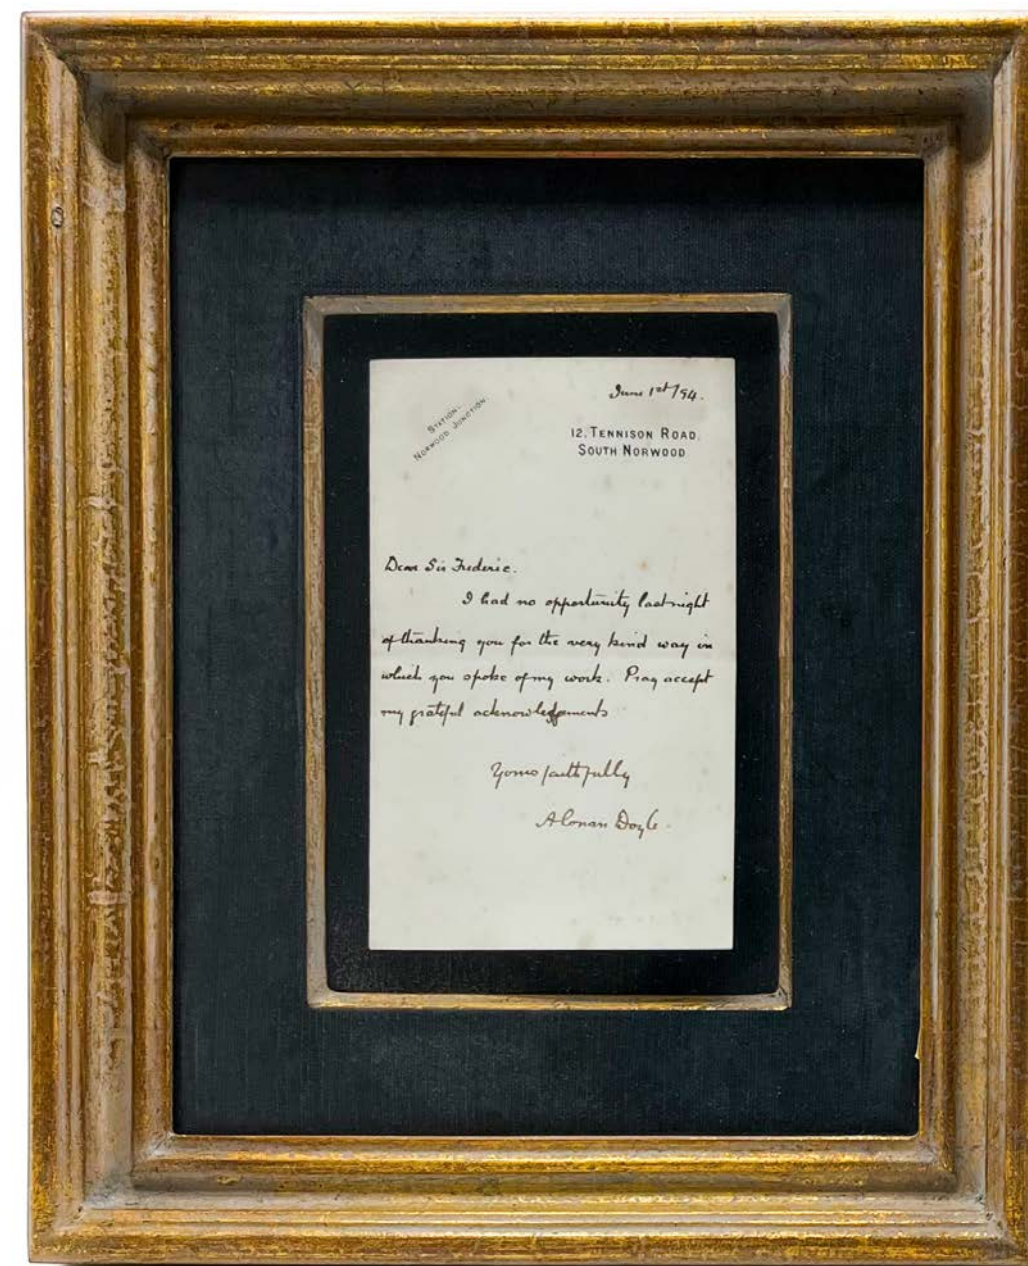 June 1st/94.
STATION.
NORWOOD JUNCTION.
12, TENNISON ROAD,
SOUTH NORWOOD.
Dear Sir Frederic.
I had no opportunity last night
of thanking you for the very kind way in
which you spoke of my work. Pray accept
my grateful acknowledgements
Yours faithfully
A Conan Doyle.